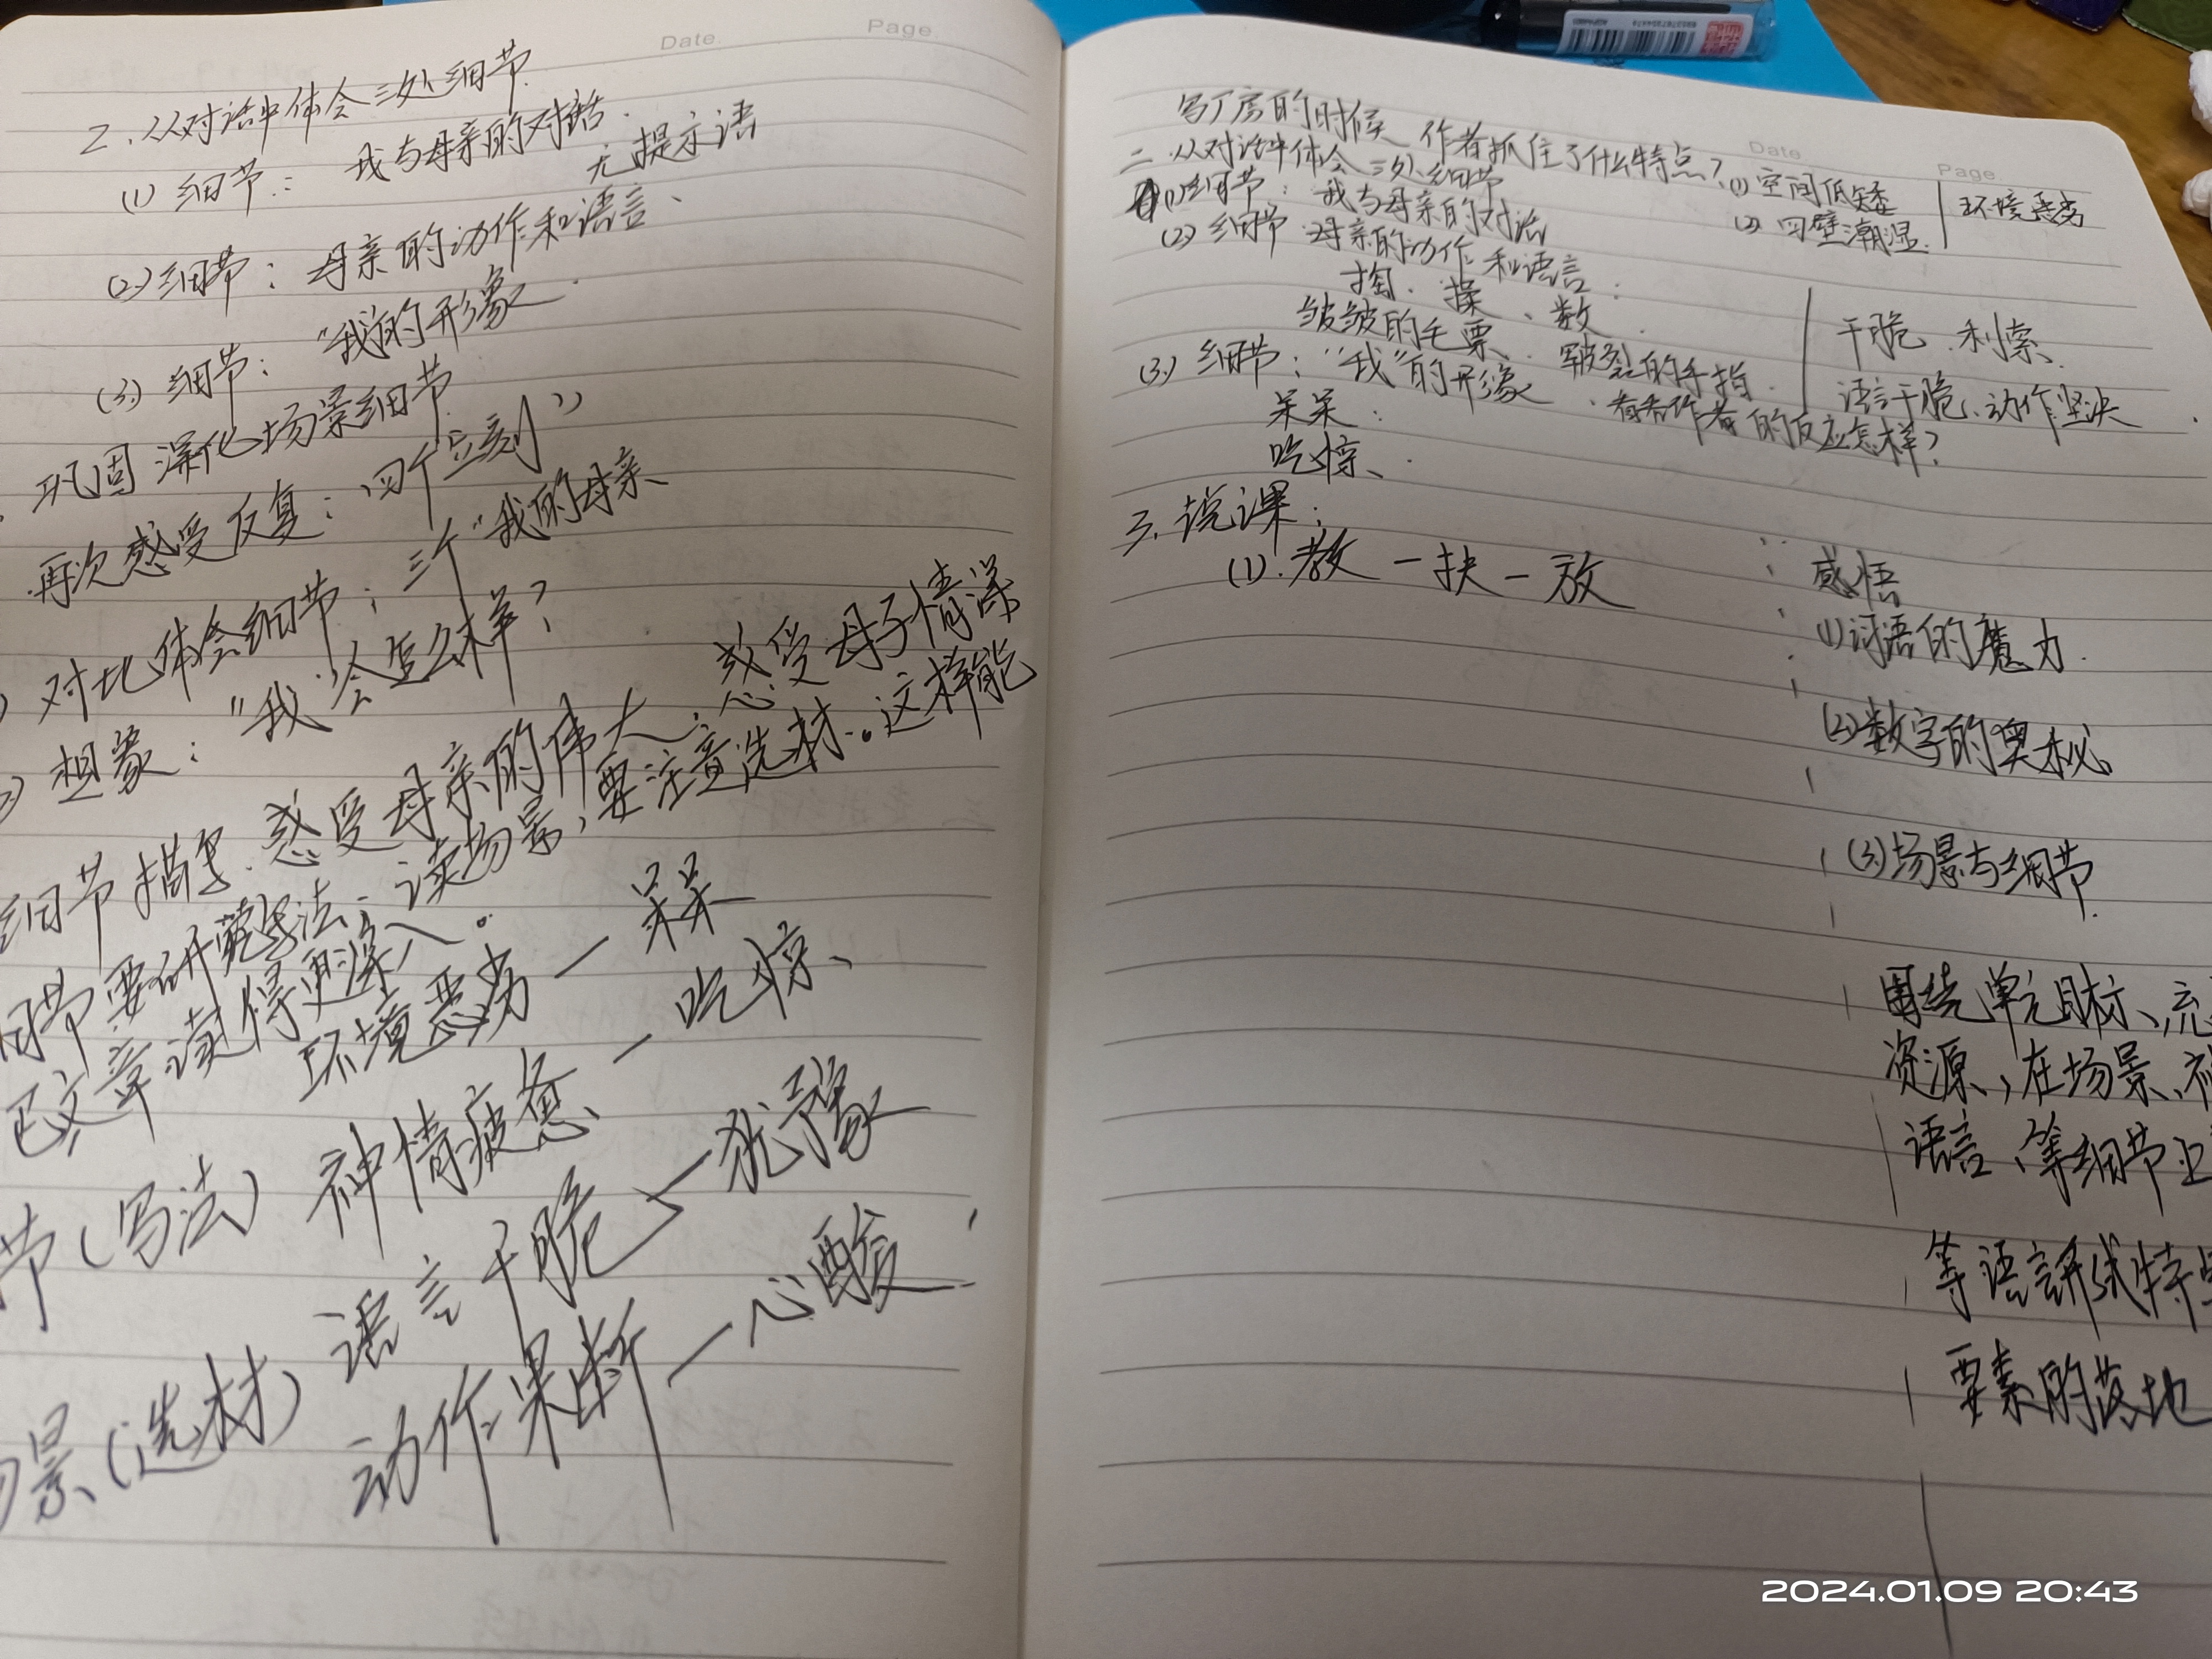 Date.
Page.
二、从对话中体会三处细节
(1) 细节: 我与母亲的对话.
无提示语
(2) 细节: 母亲的动作和语言、
(3) 细节: "我"的形象.
巩固深化场景细节
再次感受反复: 四个"立刻"
对比体会细节: 三个"我的母亲
想象: "我"会怎么样?
细节描写. 感受母亲的伟大; 感受母子情深
节要研究写法; 读场景, 要注意选材. 。这样能
文章读得更深入。
环境恶劣 — 呆呆
神情疲惫 — 吃惊、
节 (写法)
语言干脆 — 犹豫
景 (选材)
动作果断 — 心酸.
Date
Page.
写厂房的时候 作者抓住了什么特点?
(1) 空间低矮
(2) 四壁潮湿.
环境恶劣
二 从对话中体会三处细节
(1) 细节: 我与母亲的对话
(2) 细节: 母亲的动作和语言:
掏. 揉、数.
皱皱的毛票. 皲裂的手指.
干脆、利索、
语言干脆、动作坚决.
(3) 细节: "我"的形象. 看看作者的反应怎样?
呆呆:
吃惊、.
三、说课:
(1). 教 — 扶 — 放
感悟
(1) 词语的魔力.
(2) 数字的奥秘
(3) 场景与细节.
围绕单元目标、充
资源, 在场景、
语言、等细节上
等语言
要素的落地
2024.01.09 20:43